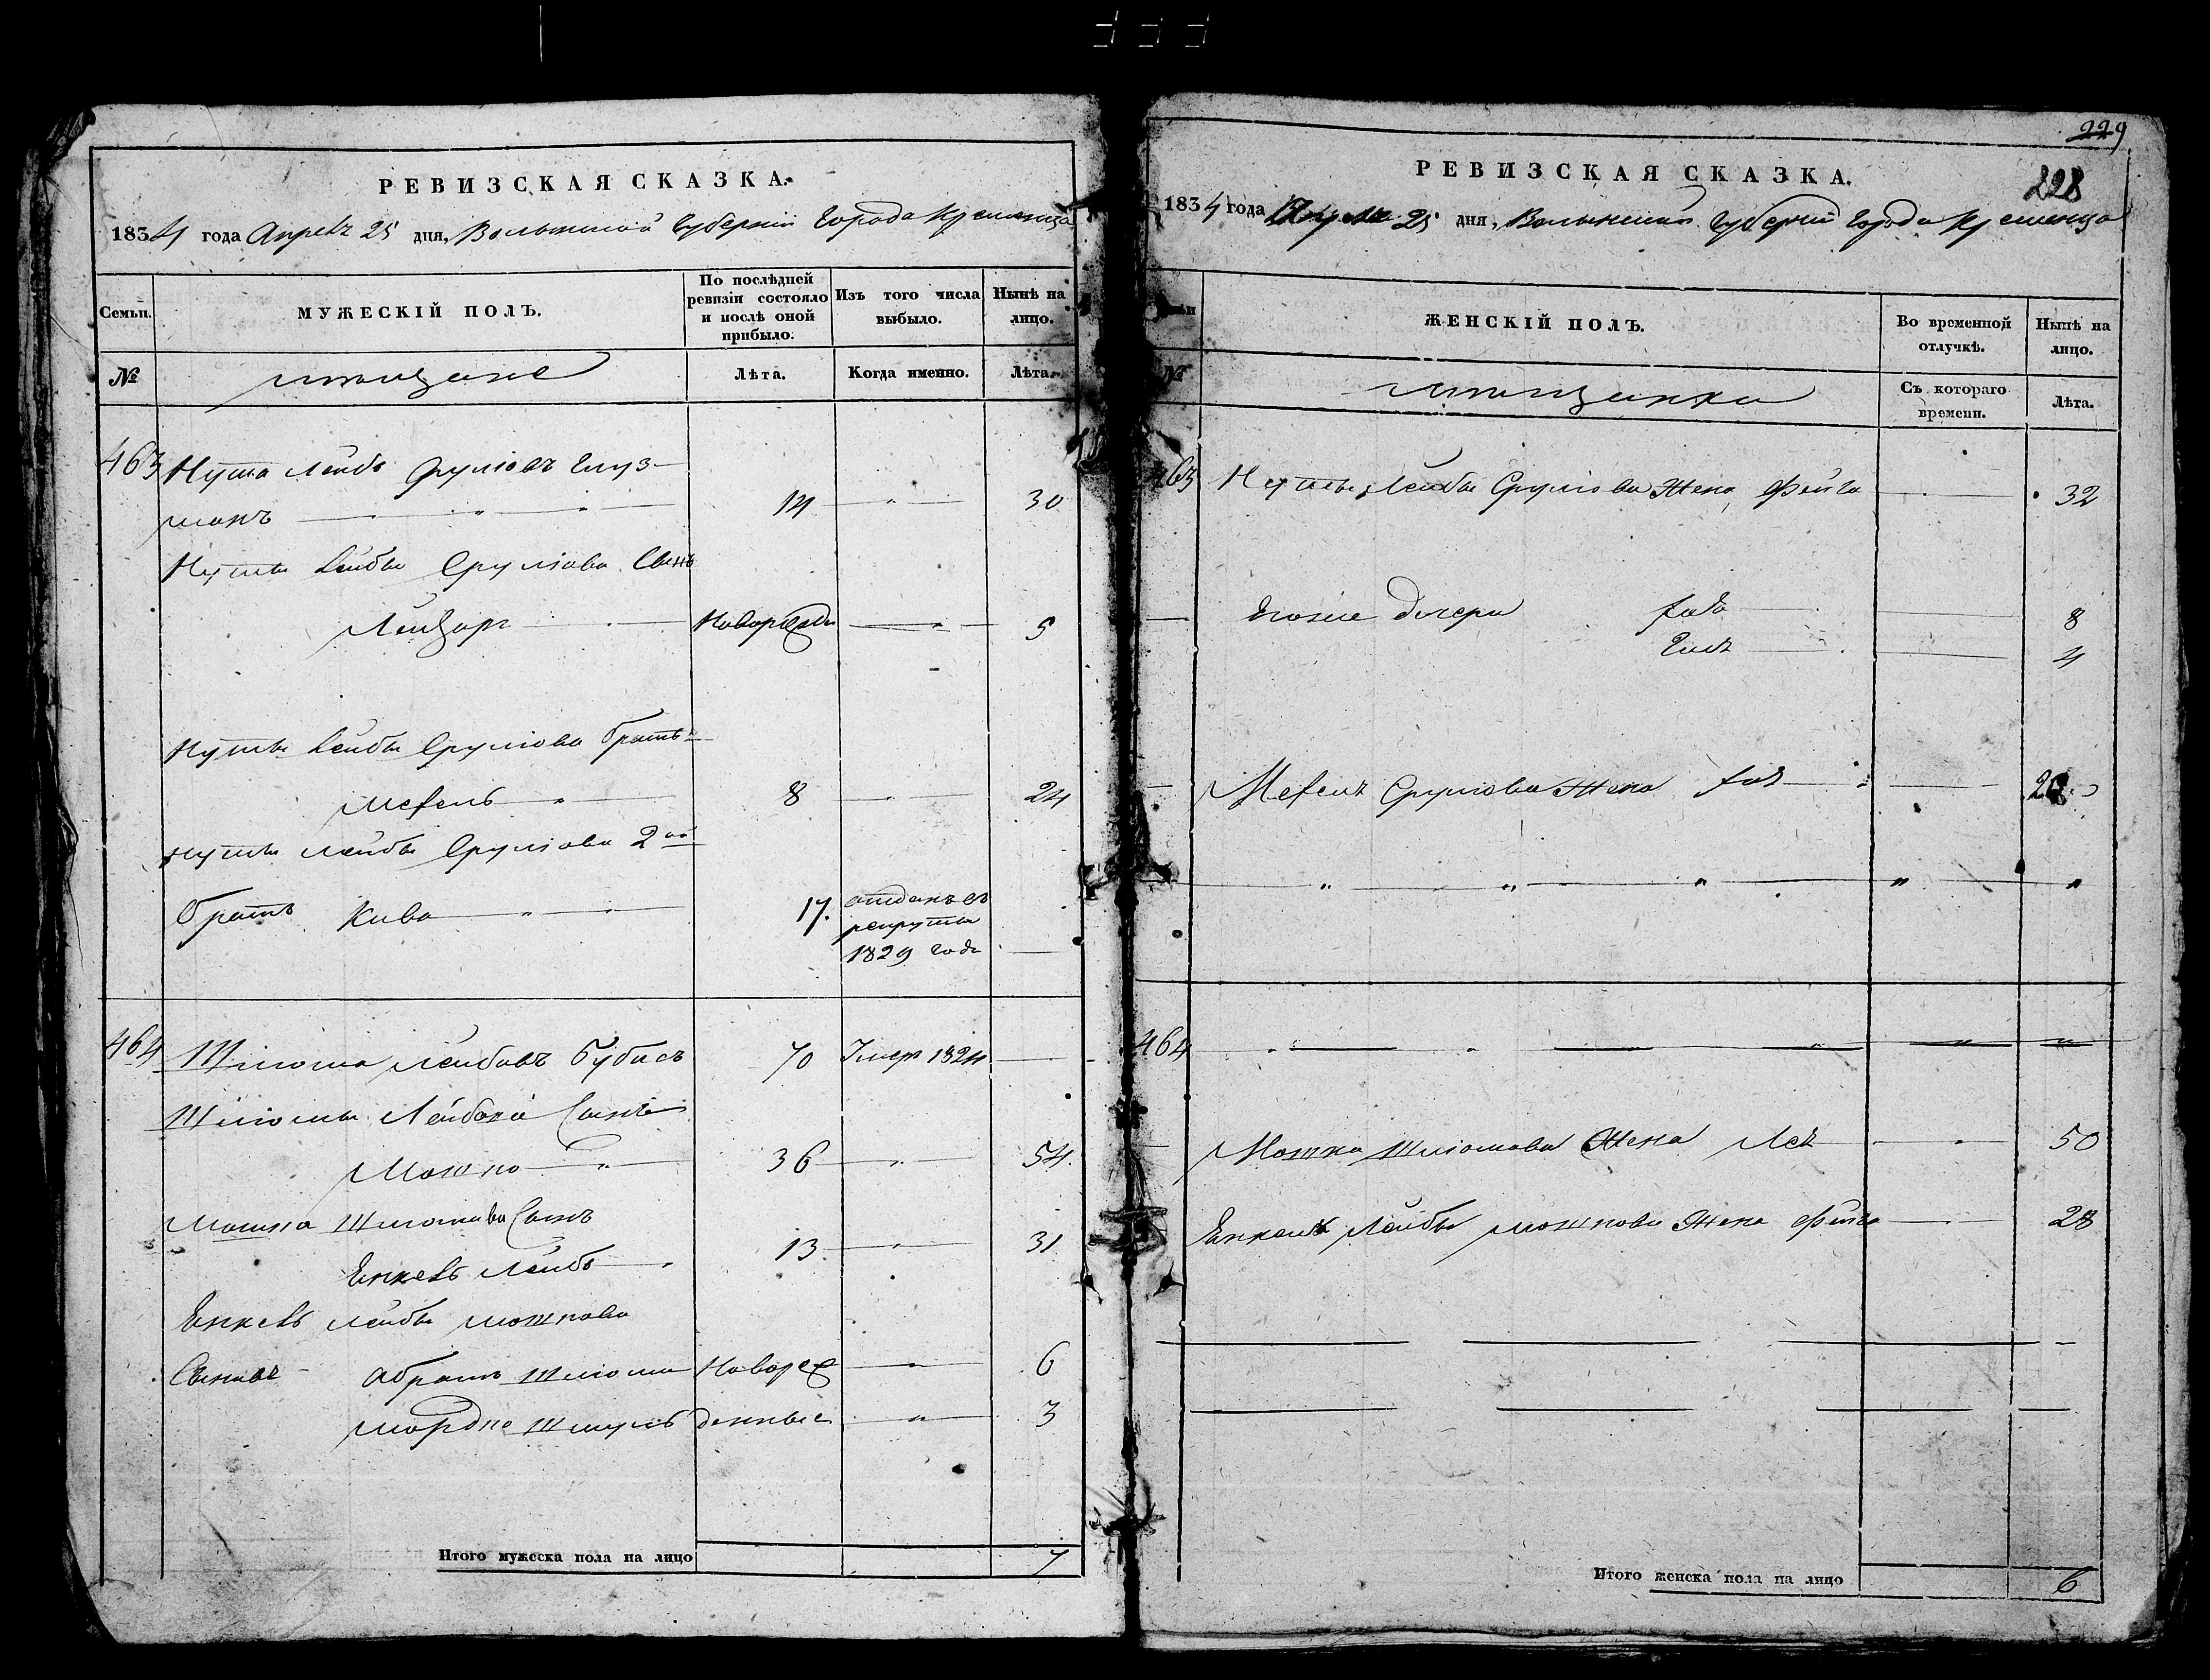 РЕВИЗСКАЯ СКАЗКА.
1834 года Апреля 25 дня, Волынской Губернiи Города Кременца
Семьи.
МУЖЕСКІЙ ПОЛЪ.
По послѣдней ревизіи состояло и послѣ оной прибыло.
Изъ того числа выбыло.
Нынѣ на лицо.
№
мещане
Лѣта.
Когда именно.
Лѣта.
463 Нута Лейбъ Сруліовъ Глуз-
манъ 14 " 30
Нуты Лейбы Сруліова Сынъ
Лейзоръ Новорожден " 5
Нуты Лейбы Сруліова братъ
Мехель " 8 " 24
Нуты Лейбы Сруліова 2ой
братъ Кива 17. отданъ въ
рекруты
1829 года
464 Шліома Лейбовъ 70 Умер 1824
Шліомы Лейбова Сынъ
Мошко " 36 " 54.
Мошка Шліомова Сынъ
Енкель Лейбъ 13 " 31
Енкель Лейбы Мошкова
Сыновя Абрамъ Шліома Новорож 6
Мордко Шмуль денные " 3
Итого мужеска пола на лицо 7
229
РЕВИЗСКАЯ СКАЗКА.
228
1834 года Апреля 25 дня, Волынской Губерніи Города Кременца
Семьи
ЖЕНСКІЙ ПОЛЪ.
Во временной отлучкѣ.
Нынѣ на лицо.
№
мещанки
Съ котораго времени.
Лѣта.
463 Нуты Лейбы Сруліова Жена Фейга 32
Егоже дочери 8
4
Мехеля Сруліова Жена 20
" " " " "
464 " " " " "
Мошка Шліомова Жена Лея " 50
Енкеля Лейбы Мошкова Жена Фейга 28
Итого женска пола на лицо 6